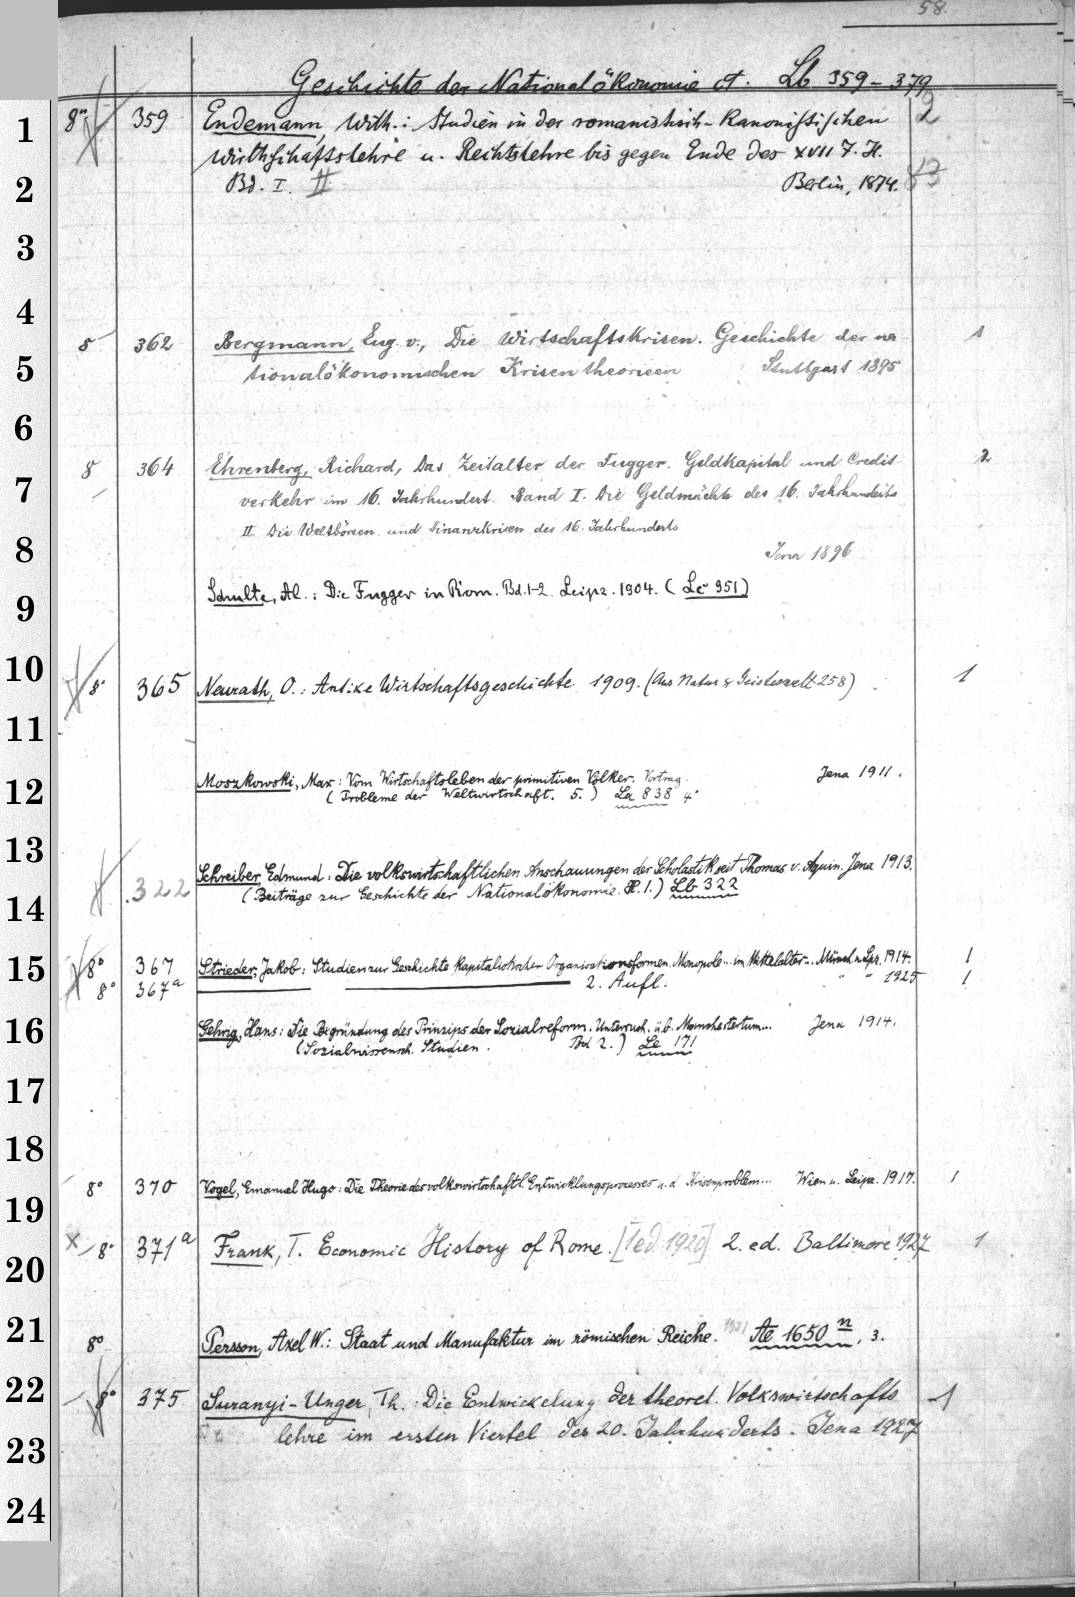 58.
Geschichte der Nationalökonomie ct. Lb 359-379
1 8° 359 Endemann, Wilh.: Studien in der romanistisch-kanonistischen 2
wirthschaftslehre u. Rechtslehre bis gegen Ende des XVII J. H.
2 Bd. I. II Berlin, 1874.
3
4
8 362 Bergmann, Eug. v., Die Wirtschaftskrisen. Geschichte der na- 1
5 tionalökonomischen Krisentheorieen Stuttgart 1895
6
8 364 Ehrenberg, Richard, Das Zeitalter der Fugger. Geldkapital und Credit- 2
7 verkehr im 16. Jahrhundert. Band I. Die Geldmächte des 16. Jahrhunderts
II Die Weltbörsen und Finanzkrisen des 16. Jahrhunderts
8 Jena 1896
9 Schulte, Al.: Die Fugger in Rom. Bd. 1-2. Leipz. 1904. (Le 351)
10 8° 365 Neurath, O.: Antike Wirtschaftsgeschichte 1909. (Aus Natur & Geisteswelt 258) 1
11
12 Moszkowski, Max: Vom Wirtschaftsleben der primitiven Völker. Vortrag. Jena 1911.
(Probleme der Weltwirtschaft. 5.) La 838 4°
13
Schreiber, Edmund: Die volkswirtschaftlichen Anschauungen der Scholastik seit Thomas v. Aquin. Jena 1913.
14 322 (Beiträge zur Geschichte der Nationalökonomie. H. 1.) Lb 322
15 8° 367 Strieder, Jakob: Studien zur Geschichte kapitalistischer Organisationsformen. Monopole... im Mittelalter... Münch u. Lpz. 1914. 1
8° 367a 2. Aufl. " " 1925 1
16 Gehrig, Hans: Die Begründung des Prinzips der Sozialreform. Untersuch. üb. Manchestertum... Jena 1914.
(Sozialwissensch. Studien. Bd 2.) Le 171
17
18
8° 370 Vogel, Emanuel Hugo: Die Theorie des volkswirtschaftl. Entwicklungsprozesses u. d Krisenproblem... Wien u. Leipz. 1917. 1
19
x 8° 371a Frank, T. Economic History of Rome. [1 ed. 1920] 2. ed. Baltimore 1927 1
20
21 8° Persson, Axel W.: Staat und Manufaktur im römischen Reiche. Ae 1650 n, 3.
22 8° 375 Suranyi-Unger, Th.: Die Entwickelung der theoret. Volkswirtschafts 1
23 lehre im ersten Viertel des 20. Jahrhunderts. Jena 1927
24